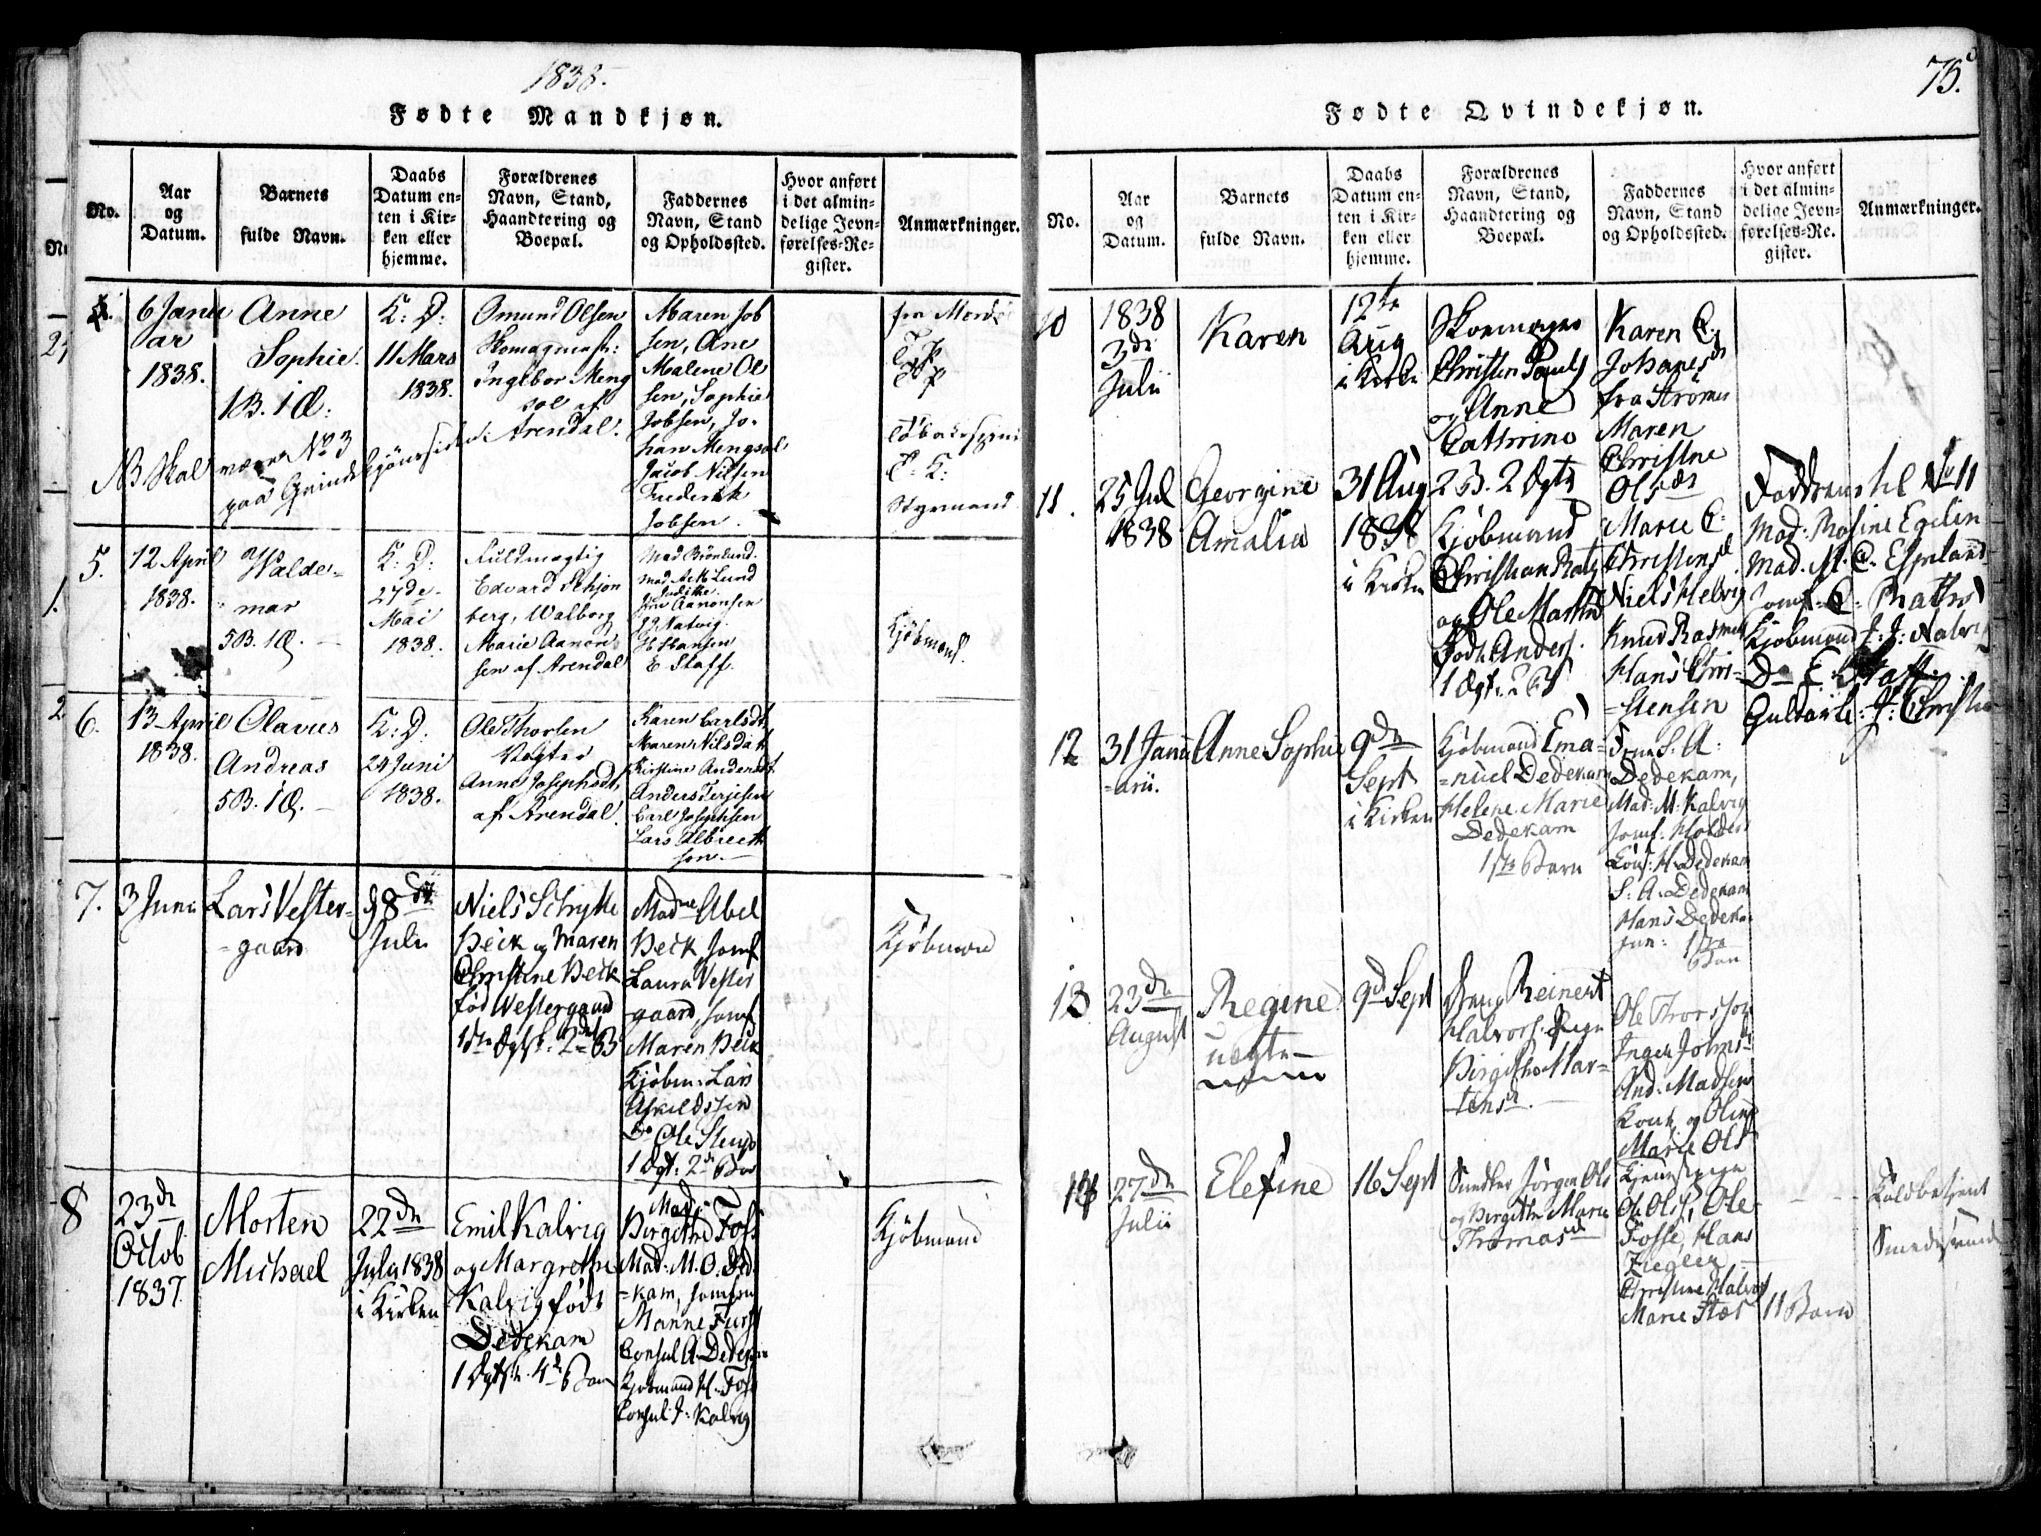 1838.
Fødte Mandkjøn.
No.
Aar
og
Datum.
Barnets
fulde Navn.
Daabs
Datum en-
ten i Kir-
ken eller
hjemme.
Forældrenes
Navn, Stand,
Haandtering og
Boepæl.
Faddernes
Navn, Stand
og Opholdssted.
Hvor anført
i det almin-
delige Jevn-
førelses-Re-
gister.
Anmærkninger.
6 Janu
ar
1838.
Anne
Sophie.
1B. 1Æ:
K: D:
11 Mars
1838.
Omund Olsen
Ingebor Meng
sol af
Arendal.
Maren Job
sen, Ane
Malene Ol
sen, Sophie
Jobsen, Jo-
han Mengsol
Jacob Nilsen
Frederik
Jobsen.
fra
Styrmand
NB Skal være No 3
paa Qvinde kjönssiden
5.
12 April
1838.
Walde-
mar
5B. 1Æ.
K: D:
27de
Mai
1838.
Fuldmægtig
Edvard Schjøn
berg, Walborg
Marie Aanon
sen af Arendal
Mad Brönlund.
Mad Ack Lund
Aanonsen
Natvig.
H Hansen
E Staff.
Kjøbmand.
6.
13 April
1838.
Olaves
Andreas
5B. 1Æ.
K: D.
24 Juni
1838.
Ole Thorsen
Vegter
Anne Josephsdt.
af Arendal.
Karen Carlsdt.
Maren Nilsdat
Kirstine Andersdt
Anders Terjesen
Carl Josephsen
Lars Albrecht
sen.
7.
3 Juni
Lars Vester-
=gaard
8de
Julii
Niels Schytte
Heick og Maren
Christine Heick
fød Westergaard
1ste Ægt. 2det B
Madme Abel
Heick Jomf
Laura Vester
gaard, Jomf
Maren Heick
Kjøbm: Lars
Askildssen
Do Ole
1 Ægt: 2de Barn
Kjøbmand
8
23de
Octob
1837.
Morten
Michael
22de
July 1838
i Kirken
Emil Kalvig
og Margrethe
Kalvig født
Dedekam
1 Ægtsk. 4de Barn
Mad:
Birgithe Foss
Mad: M. O. Ded
=kam, Jomfru
Manne Furst
Consul A Dedekam
Kjøbmand H. Foss
Consul J: Kalvig
Kjøbmand
75.
Fødte Qvindekjøn.
No.
Aar
og
Datum.
Barnets
fulde Navn.
Daabs
Datum en-
ten i Kir-
ken eller
hjemme.
Forældrenes
Navn, Stand,
Haandtering og
Boepæl.
Faddernes
Navn, Stand
og Opholdssted.
Hvor anført
i det almin-
delige Jevn-
førelses-Re-
gister.
Anmærkninger.
10
1838
3die
Julii
Karen
12te
Aug
i Kirken
Skoemager
Christen Pouls
og Anne
Cathrine
2 B. 2 Ægts
Karen C.
Johanes
fra Strömen
Maren
Christne
Ols
11.
25 Jul
1838
Georgine
Amalia
31 Aug
1838
i Kirken
Kjøbmand
Christian
og Ole Martine
Født Anders.
1 Ægt.
Marie C.
Christens
Niels Helvig
Knud Rasmus
Hans Chri-
=stensen
Faddrene til No 11
Mad. Rosine Egelin
Mad. M. C. Espeland
Jomf. C.
Kjøbmand J: J: Natvig
Do E Staff
12
31 Janu
=arii.
Anne Sophie
9de
Sept
i Kirken
Kjøbmand Ema-
=nuel Dedekam
Helene Marie
Dedekam
1ste Barn
Frue S. A:
Dedekam,
Mad: M. Kalvig
Jomf: Holders
Cons: H. Dedekam
S. A. Dedekam
Hans Dedekam
jun: 1ste
Barn
13
23de
August
Regine
uægte
9de Sept
Reinert
Halvors: Pige
Birgithe Mar-
=tens
Ole Thorsson
Inger Johns
And: Madsen
Kone og Oline
Marie Ols
14
27de
Julii
Elefine
16 Sept
Snedker Jörgen Ols
og Birgithe Marie
Thomas
Ole Ols, Ole
Fosse, Hans
Ziegler
Christine Halvors
Marie
11 Barn
Toldbetjent
Smedesvend